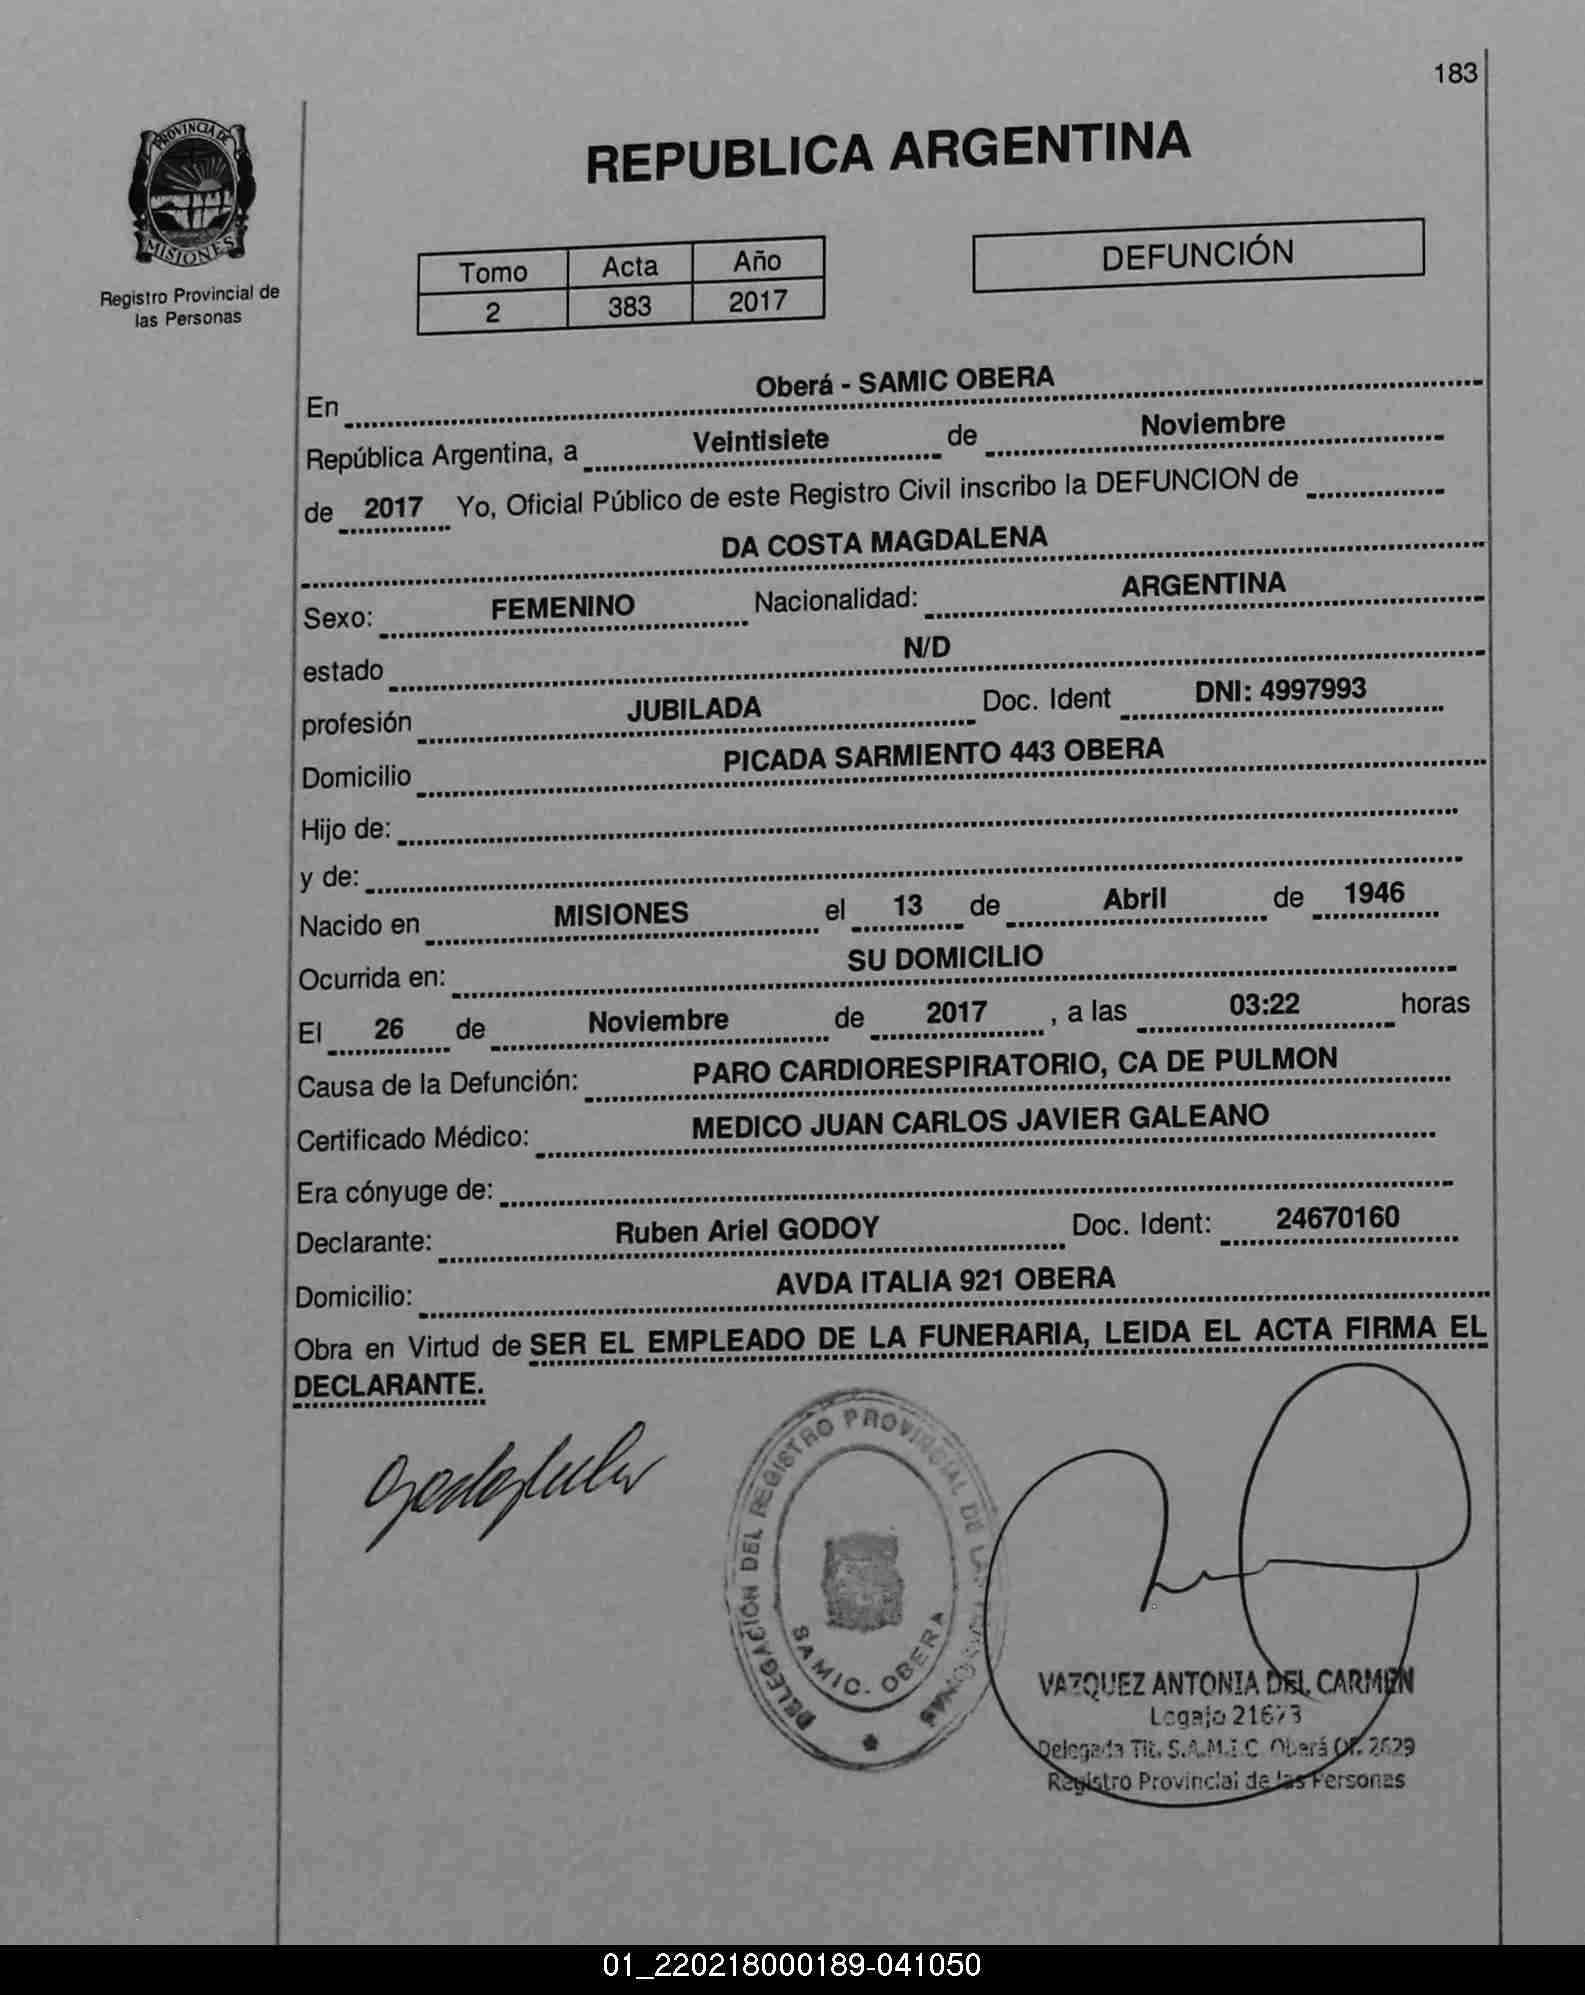 183
PROVINCIA DE
MISIONES
Registro Provincial de
las Personas
REPUBLICA ARGENTINA
Tomo Acta Año
2 383 2017
DEFUNCIÓN
En Oberá - SAMIC OBERA
República Argentina, a Veintisiete de Noviembre
de 2017 Yo, Oficial Público de este Registro Civil inscribo la DEFUNCION de
DA COSTA MAGDALENA
Sexo: FEMENINO Nacionalidad: ARGENTINA
estado N/D
profesión JUBILADA Doc. Ident DNI: 4997993
Domicilio PICADA SARMIENTO 443 OBERA
Hijo de:
y de:
Nacido en MISIONES el 13 de Abril de 1946
Ocurrida en: SU DOMICILIO
El 26 de Noviembre de 2017 , a las 03:22 horas
Causa de la Defunción: PARO CARDIORESPIRATORIO, CA DE PULMON
Certificado Médico: MEDICO JUAN CARLOS JAVIER GALEANO
Era cónyuge de:
Declarante: Ruben Ariel GODOY Doc. Ident: 24670160
Domicilio: AVDA ITALIA 921 OBERA
Obra en Virtud de SER EL EMPLEADO DE LA FUNERARIA, LEIDA EL ACTA FIRMA EL
DECLARANTE.
DELEGACIÓN DEL REGISTRO PROVINCIAL DE LAS PERSONAS
SAMIC. OBERA
VAZQUEZ ANTONIA DEL CARMEN
Legajo 21673
Delegada Tit. S.A.M.I.C. Oberá Of. 2629
Registro Provincial de las Personas
01_220218000189-041050